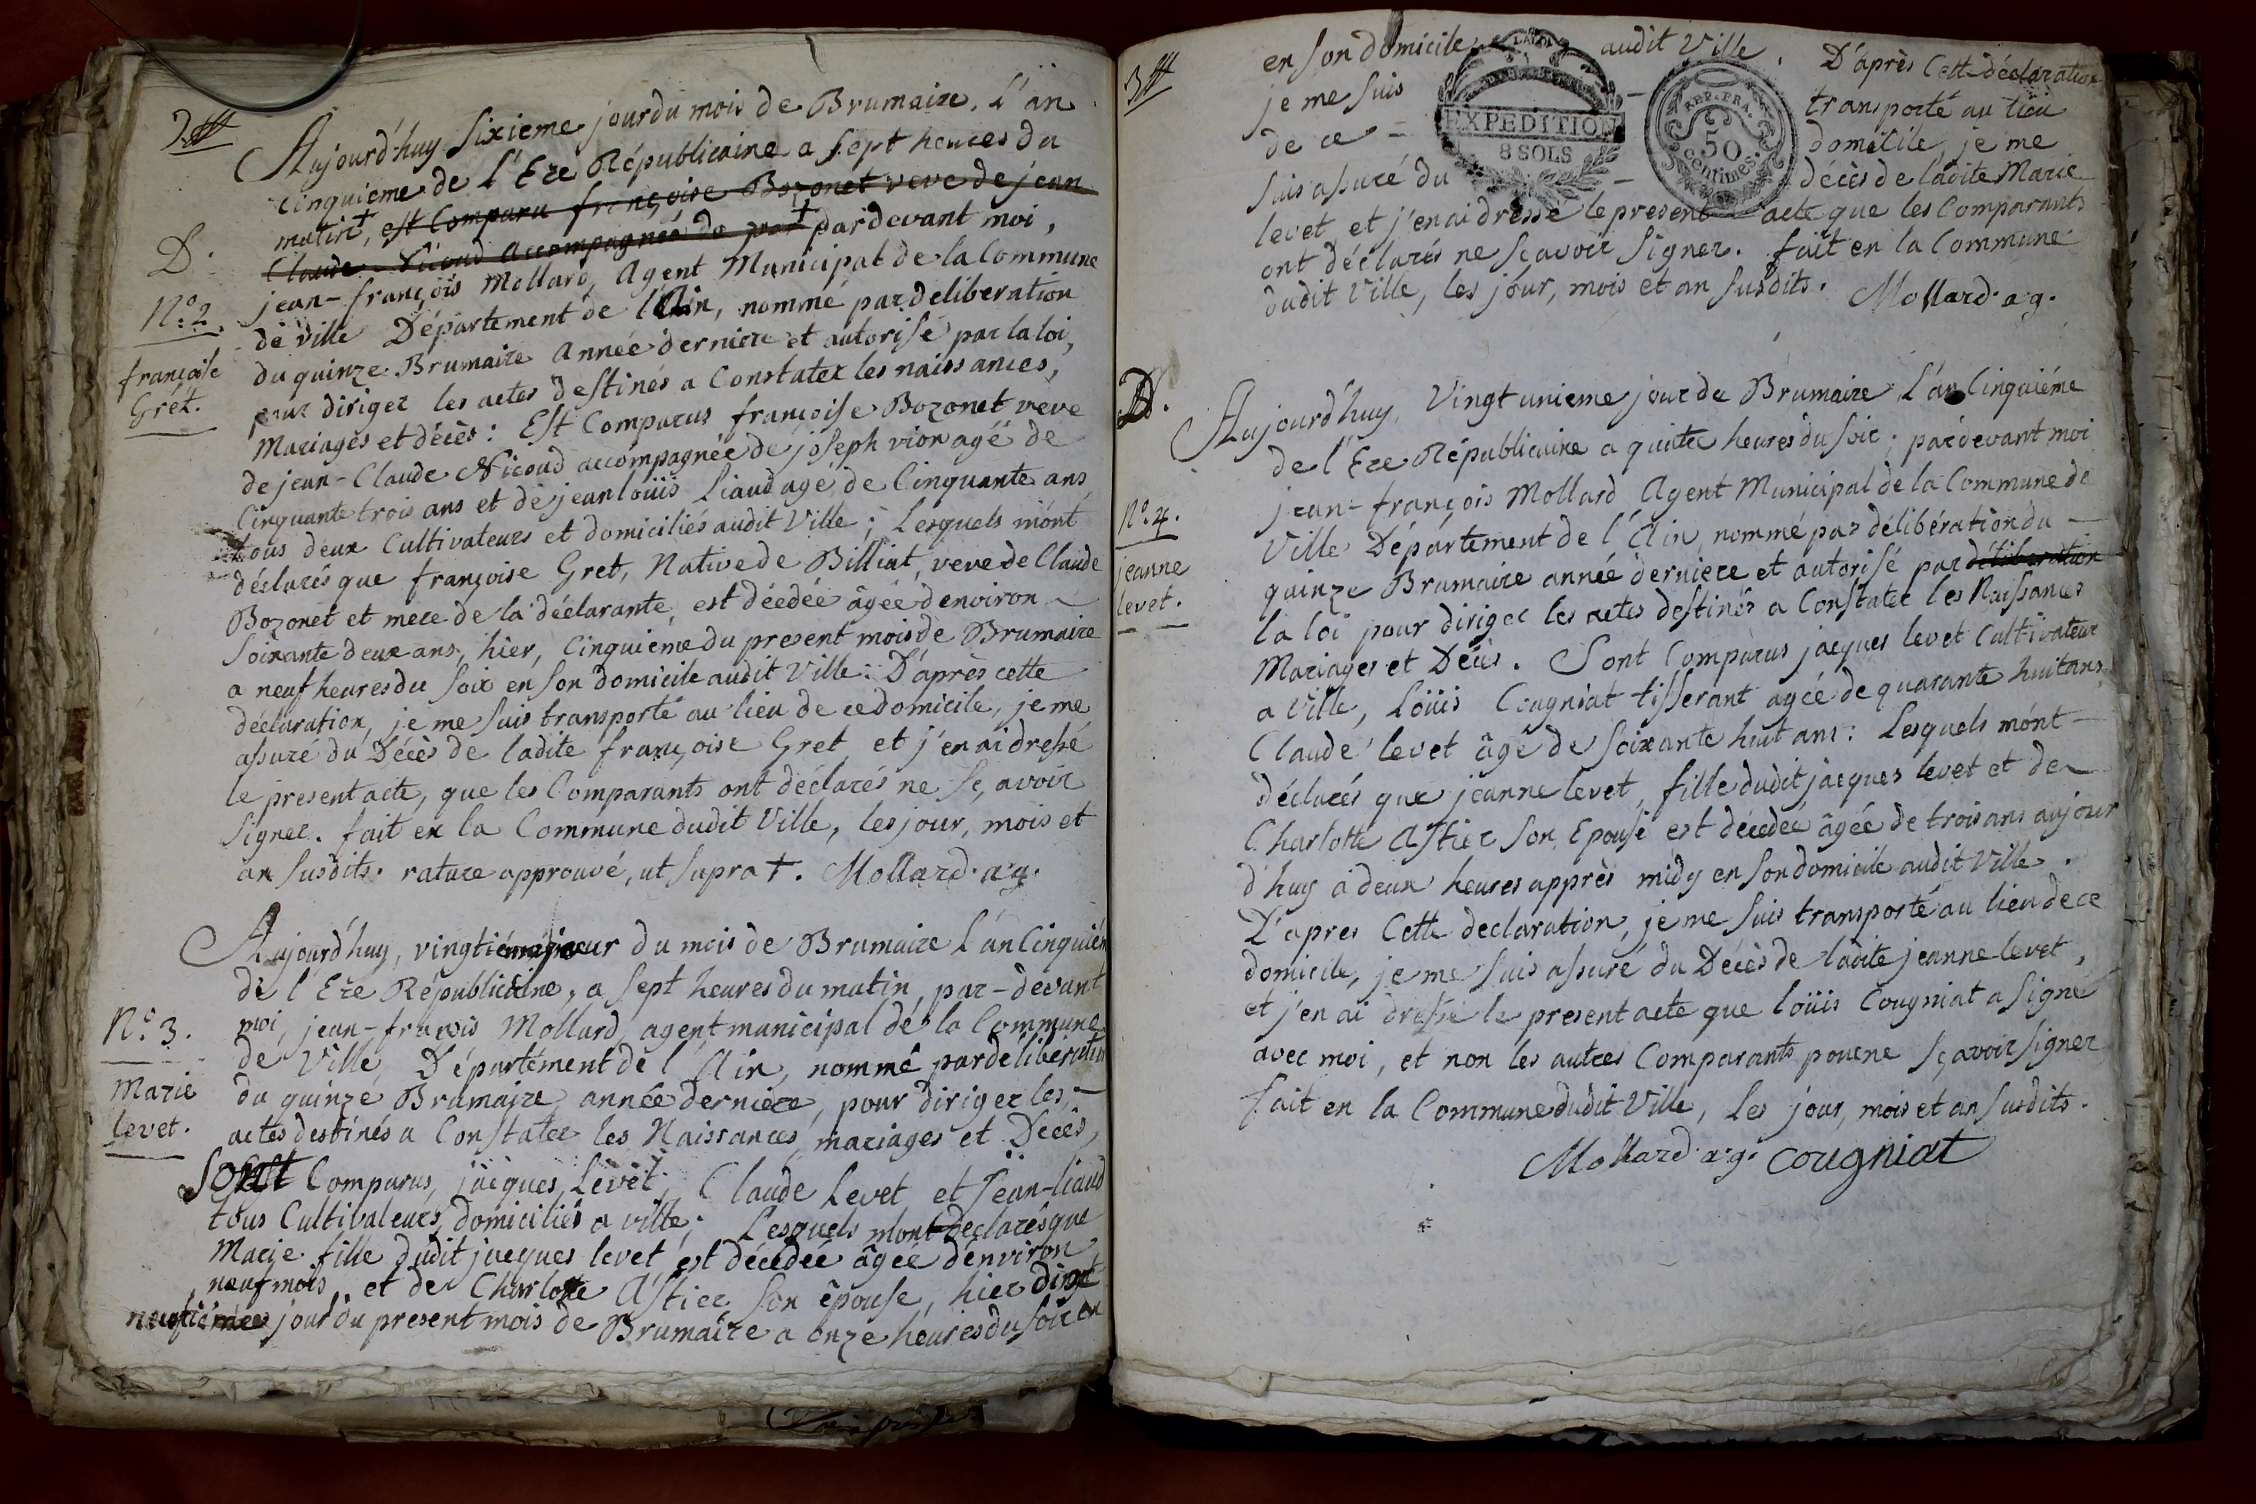 D.
N.° 2
françoise
Grét.
Aujourd'huy sixieme jour du mois de Brumaire, L'an
cinquieme de L'Ere Républicaine a sept heures du
matin +, est Comparu françoise Bozonet veve de jean
Claude Nicoud accompagnée de + pardevant moi,
jean-françois Mollard, Agent Municipal de la Commune
de ville Département de l'Ain, nommé par deliberation
du quinze Brumaire Année derniere et autorisé par la loi,
pour diriger les actes destinés a Constater les naissances,
Mariages et décès : Est Comparus françoise Bozonet veve
de jean-Claude Nicoud accompagnée de joseph vion agé de
Cinquante trois ans et de jean loüis Liaud agé de Cinquante ans
tous deux Cultivateurs et domiciliés audit Ville ; Lesquels m'ont
déclarés que françoise Gret, Native de Billiat, veve de Claude
Bozonet et mere de la déclarante, est décédée âgée d'environ
soixante deux ans, hier, Cinquieme du present mois de Brumaire
a neuf heures du soir en son domicile audit Ville : D'après cette
déclaration, je me suis transporté au lieu de ce domicile, je me
assuré du Décès de ladite françoise Gret et j'en ai dressé
le present acte, que les Comparants ont déclarés ne sçavoir
signer. fait en la Commune dudit Ville, les jour, mois et
an susdits. rature approuvé, ut supra +. Mollard. ag.
N.° 3.
Marie
levet.
Aujourd'huy, vingtiéme jour du mois de Brumaire L'an Cinquiém
de l'Ere Républicaine, a sept heures du matin, par-devant
moi, jean-françois Mollard, agent municipal de la Commune
de Ville, Département de l'Ain, nommé par délibération
du quinze Brumaire, année derniere, pour diriger les
actes destinés a Constater les Naissances, mariages et Décès,
Sont Comparus, jacques Levet, Claude Levet et Jean-liaud
tous Cultivateurs, domiciliés a ville ; Lesquels m'ont déclarés que
Marie fille dudit jacques levet est décédée âgée d'environ
neuf mois, et de Charlotte Astier son épouse, hier dix
neuftiéme jour du present mois de Brumaire a onze heures du soir en
en son domicile audit Ville. D'après Cette déclaration
EXPEDITION
8 SOLS
REP. FRA.
50
centimes.
je me suis transporté au lieu
de ce domicile, je me
suis assuré du décès de ladite Marie
levet, et j'en ai dressé le present acte que les Comparants
ont déclarés ne sçavoir signer. fait en la Commune
dudit Ville, les jour, mois et an susdits. Mollard. ag.
D.
N.° 4.
jeanne
levet.
Aujourd'huy, Vingt unieme jour de Brumaire L'an Cinquiéme
de l'Ere Républicaine a quatre heures du soir ; pardevant moi
jean-françois Mollard Agent Municipal de la Commune de
Ville Département de l'Ain, nommé par délibération du
quinze Brumaire année derniere et autorisé par déliberation
la loi pour diriger les actes destinés a Constater les Naissances
Mariages et Décès. Sont Comparus jacques levet Cultivateur
a Ville, Loüis Cougniat tisserant agée de quarante huit ans,
Claude levet âgé de soixante huit ans : Lesquels m'ont
déclarés que jeanne levet, fille dudit jacques levet et de
Charlotte Astier son Epouse est décedée âgée de trois ans aujour
d'huy a deux heures apprès midy en son domicile audit Ville.
D'apres Cette declaration, je me suis transporté au lieu de ce
domicile, je me suis assuré du Décès de ladite jeanne levet,
et j'en ai dressé le present acte que loüis Cougniat a signé
avec moi, et non les autres Comparants pour ne sçavoir signer
fait en la Commune dudit Ville, Les jour, mois et an susdits.
Mollard. ag. Cougniat